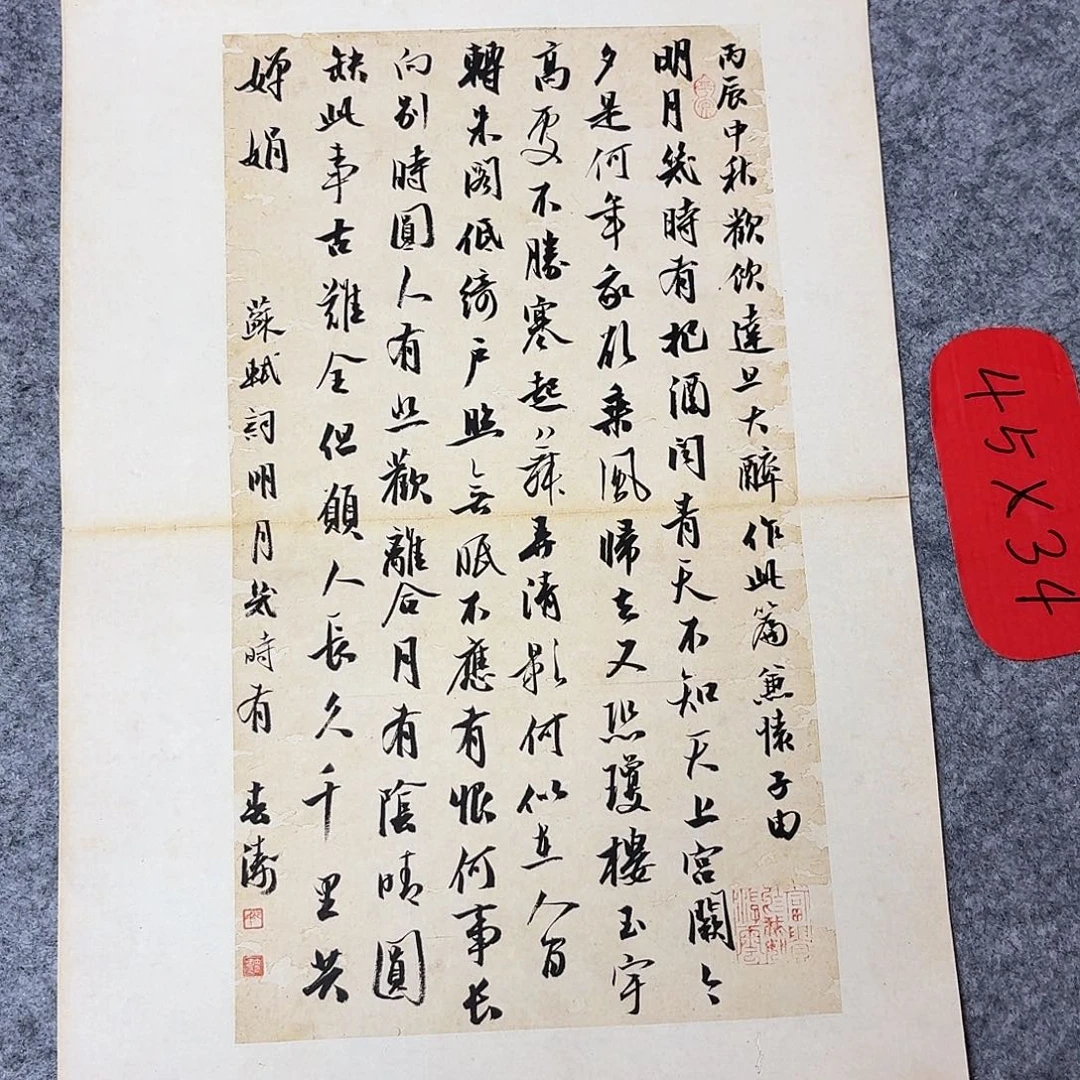 丙辰中秋歡飲達旦大醉作此篇兼懷子由
明月幾時有把酒问青天不知天上宮闕今
夕是何年我欲乘風歸去又恐瓊樓玉宇
高處不勝寒起舞弄清影何似在人间
轉朱閣低綺户照無眠不應有恨何事长
向别時圓人有悲歡離合月有陰晴圓
缺此事古難全但願人長久千里共
嬋娟
蘇軾詞明月幾時有 春濤
45X34